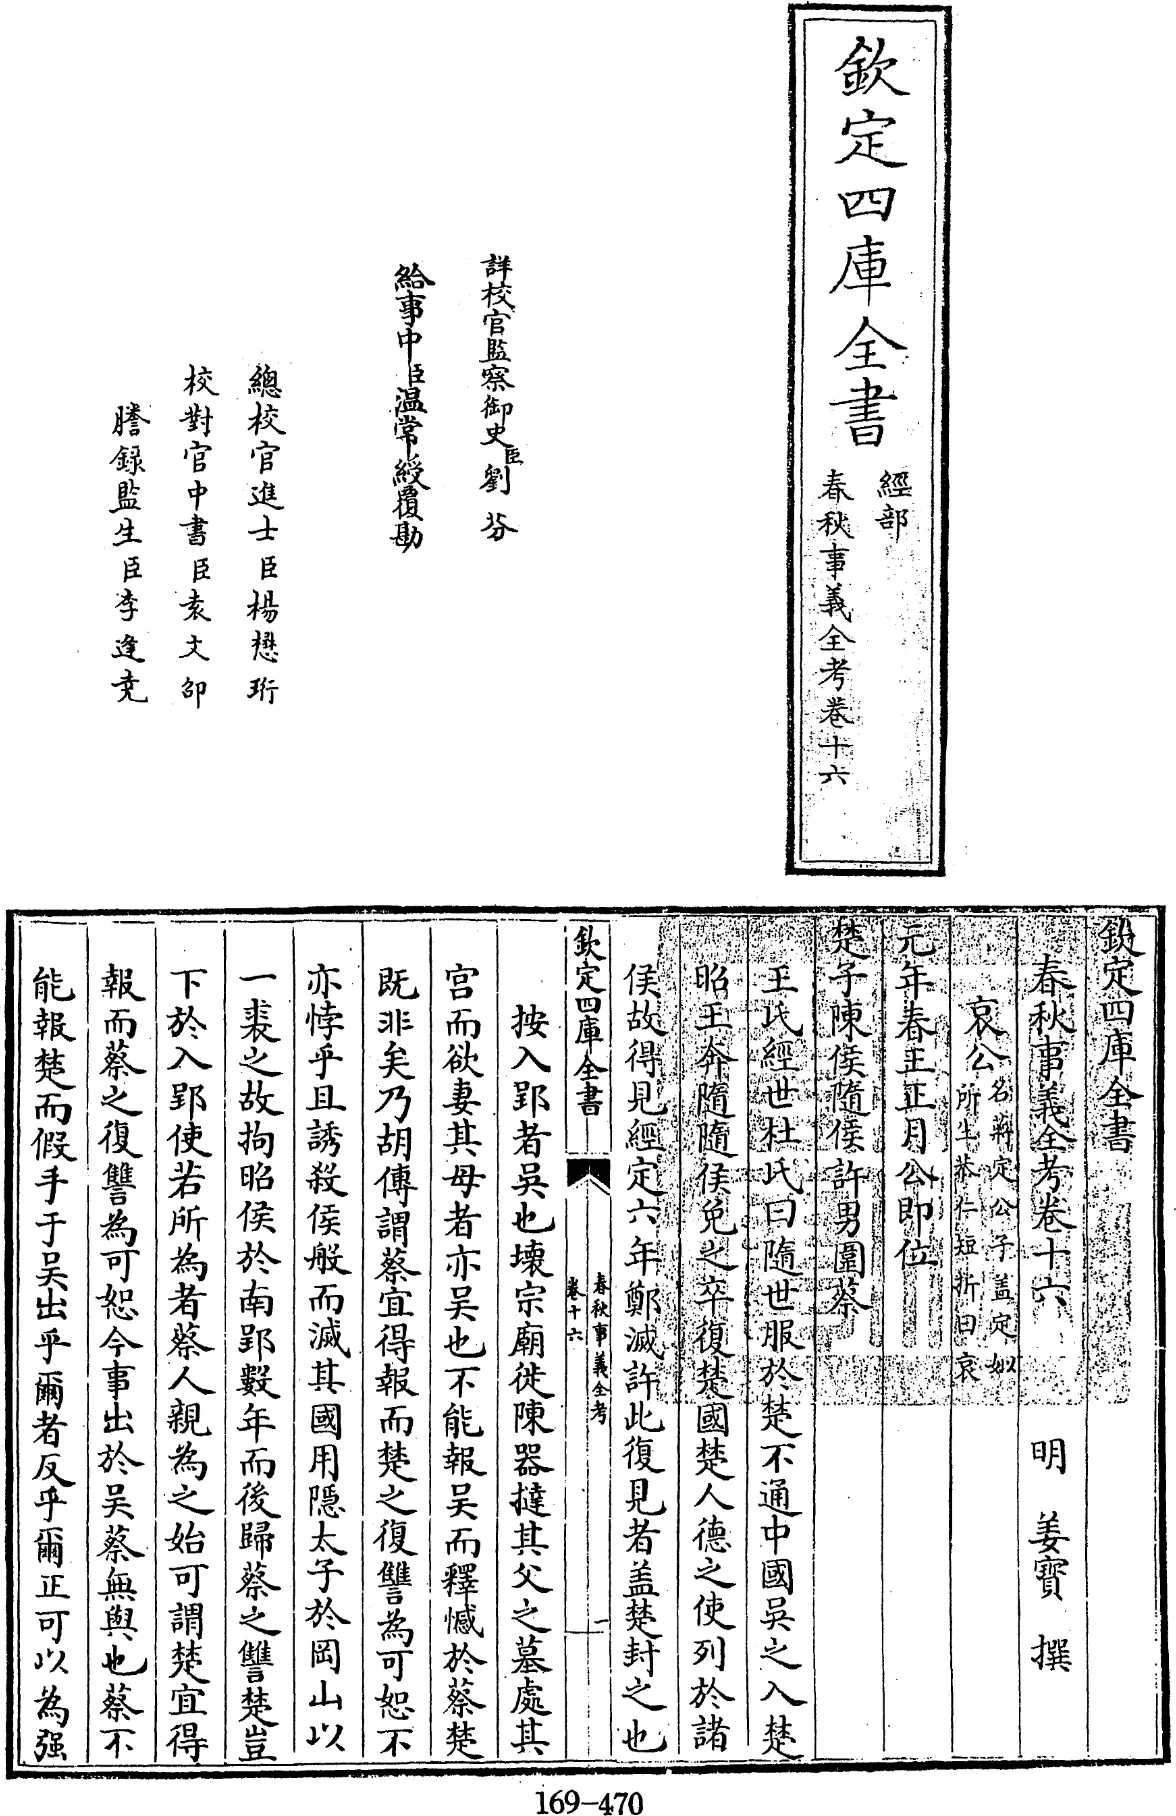 欽定四庫全書
經部
春秋事義全考卷十六
詳校官監察御史臣劉芬
給事中臣温常綬覆勘
總校官進士臣楊懋珩
校對官中書臣袁文邵
謄錄監生臣李逢堯
欽定四庫全書
春秋事義全考卷十六
明 姜寳 撰
哀公名蔣定公子盖定姒
所生恭仁短折曰哀
元年春王正月公即位
楚子陳侯隨侯許男圍蔡
王氏經世杜氏曰隨世服於楚不通中國吳之入楚
昭王奔隨隨侯免之卒復楚國楚人德之使列於諸
侯故得見經定六年鄭滅許此復見者盖楚封之也
欽定四庫全書
春秋事義全考
卷十六
一
按入郢者吳也壞宗廟徙陳器撻其父之墓處其
宫而欲妻其母者亦吳也不能報吳而釋憾於蔡楚
既非矣乃胡傳謂蔡宜得報而楚之復讐為可恕不
亦悖乎且誘殺侯般而滅其國用隱太子於岡山以
一裘之故拘昭侯於南郢數年而後歸蔡之讐楚豈
下於入郢使若所為者蔡人親為之始可謂楚宜得
報而蔡之復讐為可恕今事出於吳蔡無與也蔡不
能報楚而假手于吳出乎爾者反乎爾正可以為强
169-470